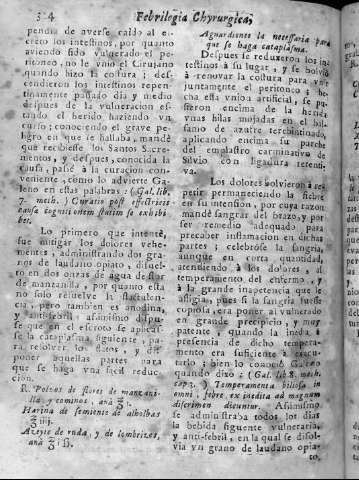 314 Febrilogia Chyrurgica,
pendia de averse caìdo al es-
croto los intestinos, por quanto
aviendo sido vulgerado el pe-
ritoneo, no le vniò el Cirujano
quando hizo la costura; des-
cendieron los intestinos repen-
tinamente passado dia y medio
despues de la vulneracion es-
tando el herido haziendo vn
curso; conociendo el grave pe-
ligro en que se hallaba, mandè
que recibiesse los Santos Sacra-
mentos, y despues, conocida la
causa, passè à la curacion con-
veniente, como lo advierte Ga-
leno en estas palabras: (Gal. lib.
7. meth.) Curatio post effectricis
causæ cognitionem statim se exhibi-
bet.
Lo primero que intentè,
fue mitigar los dolores vehe-
mentes, administrando dos gra-
nos de laudano opiato, disuel-
to en dos onzas de agua destilar
de manzanilla, por quanto esta
no solo resuelve la flatulen-
cia, pero tambien es anodina,
y anti-febril, assimismo dispu-
se que en el escroto se aplicas-
se la cataplasma, siguiente, pa-
ra resolver los flatos, y dis-
poner aquellas partes para
que se haga vna facil reduc-
cion.
R. Polvos de flores de manzani-
lla y cominos, ana ℥.
Harina de semiente de alholbas
℥iiij.
Azeyte de ruda, y de lombrizes,
ana ℥iß.
Aguardiente la necessaria para
que se haga cataplasma.
Despues se reduxeron los in-
testinos à su lugar, y se bolviò
à renovar la costura para vnir
juntamente el peritoneo; he-
cha esta vnion artificial, se pu-
sieron encima de la herida
vnas hilas mojadas en el bal-
samo de azufre terebintinado,
aplicando encima su parche
del emplastro carminativo de
Silvio con ligadura retenti-
va.
Los dolores bolvieron à re-
petir permaneciendo la fiebre
en su intension, por cuya razon
mandè sangrar del brazo, y por
ser remedio adequado para
precaber inflamacion en dichas
partes; celebròse la sangria,
aunque en corta quantidad,
atendiendo à los dolores, al
temperamento del enfermo, y
à la grande inapetencia que le
afligia, pues si la sangria fuesse
copiosa, era poner al vulnerado
en grande precipicio, y muy
patente, y quando la inedia à
presencia de dicho tempera-
mento era suficiente à execu-
tarlo; bien lo conociò Galeno
quando dixo: (Gal. lib. 8. meth.
cap. 3.) Temperamenta biliosa in
omni febre, ex inedia ad magnum
discrimen dicuntur. Assimismo
se administraba todos los dias
la bebida siguiente vulneraria,
y anti-febril, en la qual se disol-
via vn grano de laudano opia-
to,